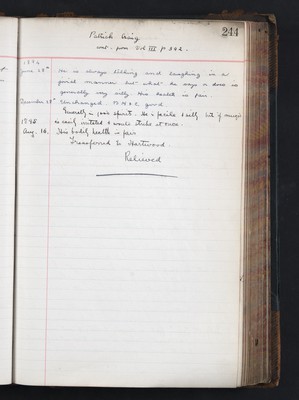 244
Patrick Craig
cont. from Vol III p 342.
1894
June 28th He is always talking and laughing in a
genial manner but what he says or does is
generally very silly. His health is fair.
December 28th Unchanged. B.H. & C. good
Generally in good spirits. He is facile & silly but if
1895 is easily irritated & would strike at once.
Aug. 16. His bodily health is fair
Transferred to Hartwood
Relieved